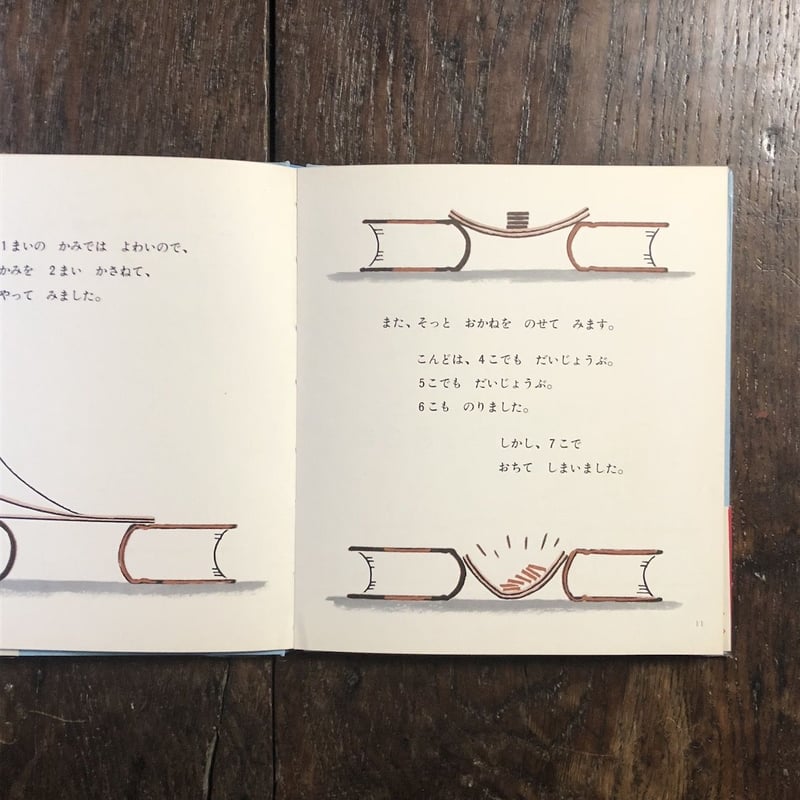 1まいの かみでは よわいので、
かみを 2まい かさねて、
やって みました。
また、そっと おかねを のせて みます。
こんどは、4こでも だいじょうぶ。
5こでも だいじょうぶ。
6こも のりました。
しかし、7こで
おちて しまいました。
11